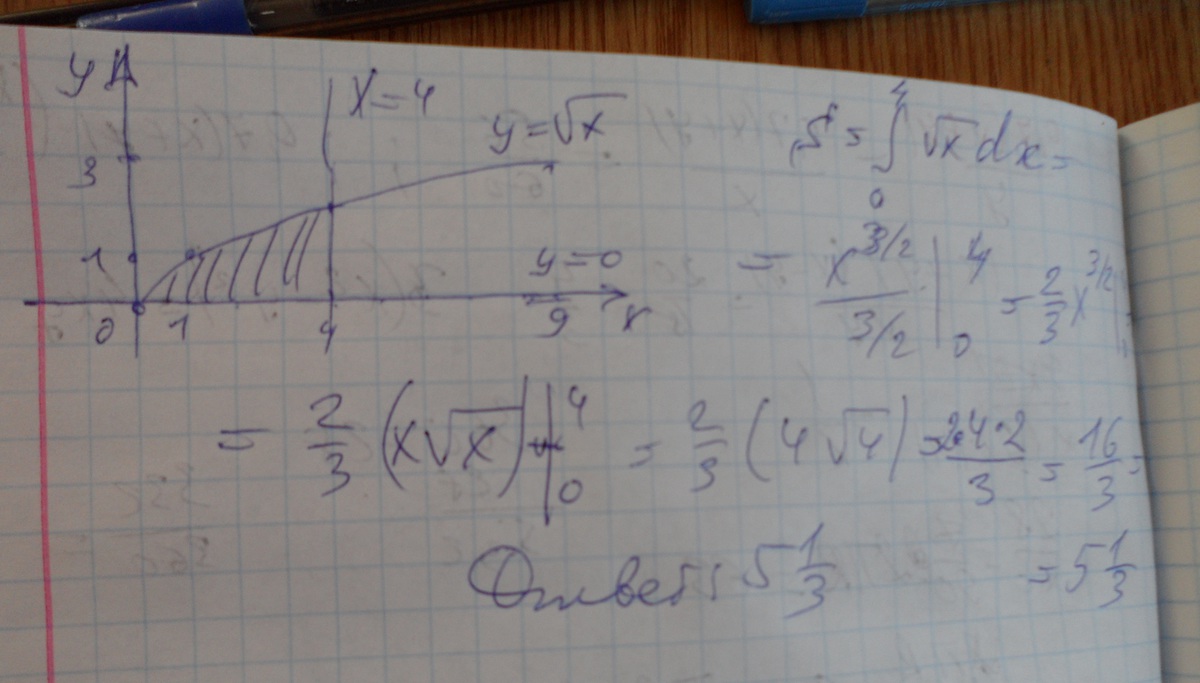 y
x = 4
y = √x
3
1
y = 0
0 1 4 9 x
S = ∫₀⁴ √x dx =
= x^3/2 / 3/2 |₀⁴ = 2/3 x^3/2 |
= 2/3 (x√x) |₀⁴ = 2/3 (4√4) = 2·4·2/3 = 16/3 =
= 5 1/3
Ответ: 5 1/3